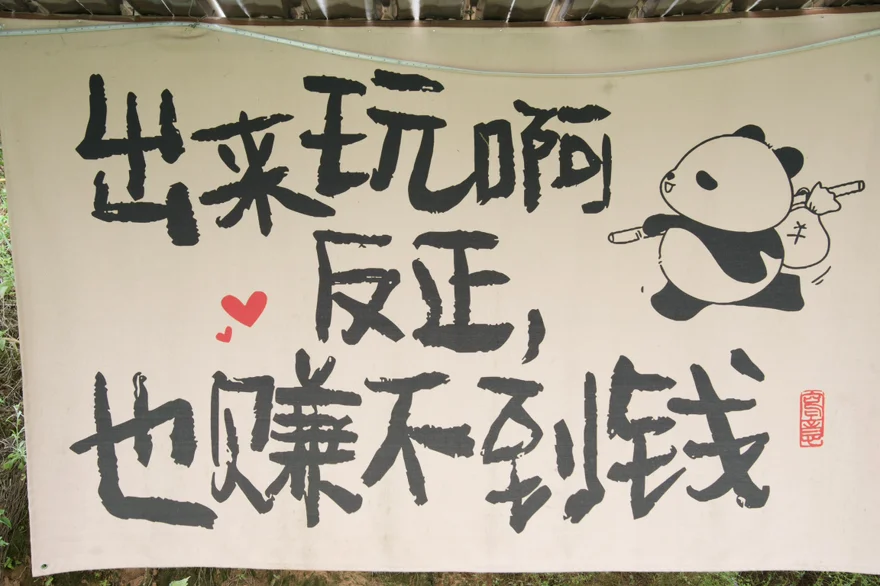 出来玩啊
反正,
也赚不到钱